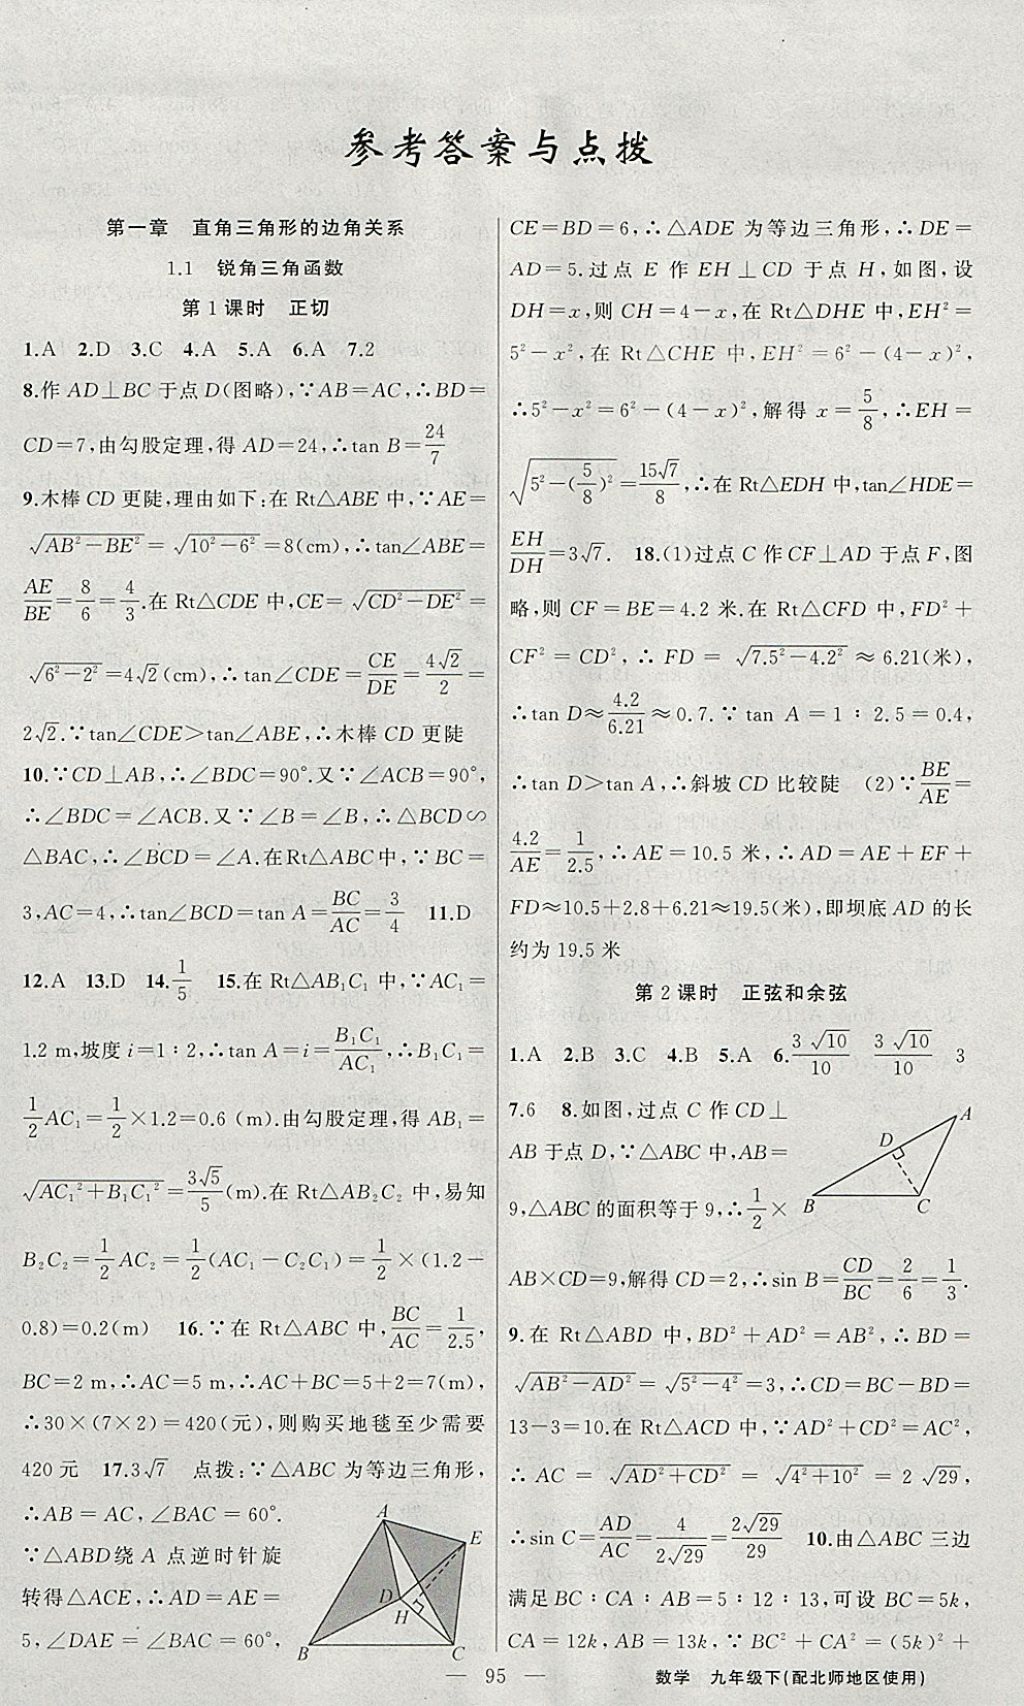 参考答案与点拨
第一章　直角三角形的边角关系
1.1　锐角三角函数
第1课时　正切
1.A　2.D　3.C　4.A　5.A　6.A　7.2
8.作 AD⊥BC 于点 D(图略),∵AB=AC,∴BD=
CD=7,由勾股定理,得 AD=24,∴tan B=24/7
9.木棒 CD 更陡,理由如下:在 Rt△ABE 中,∵AE=
√(AB²−BE²)=√(10²−6²)=8(cm),∴tan∠ABE=
AE/BE=8/6=4/3.在 Rt△CDE 中,CE=√(CD²−DE²)=
√(6²−2²)=4√2(cm),∴tan∠CDE=CE/DE=4√2/2=
2√2.∵tan∠CDE>tan∠ABE,∴木棒 CD 更陡
10.∵CD⊥AB,∴∠BDC=90°.又∵∠ACB=90°,
∴∠BDC=∠ACB.又∵∠B=∠B,∴△BCD∽
△BAC,∴∠BCD=∠A.在Rt△ABC中,∵BC=
3,AC=4,∴tan∠BCD=tan A=BC/AC=3/4　11.D
12.A　13.D　14.1/5　15.在 Rt△AB₁C₁ 中,∵AC₁=
1.2 m,坡度 i=1∶2,∴tan A=i=B₁C₁/AC₁,∴B₁C₁=
1/2AC₁=1/2×1.2=0.6 (m).由勾股定理,得 AB₁=
√(AC₁²+B₁C₁²)=3√5/5(m).在 Rt△AB₂C₂ 中,易知
B₂C₂=1/2AC₂=1/2(AC₁−C₂C₁)=1/2×(1.2−
0.8)=0.2(m)　16.∵在 Rt△ABC 中,BC/AC=1/2.5,
BC=2 m,∴AC=5 m,∴AC+BC=5+2=7(m),
∴30×(7×2)=420(元),则购买地毯至少需要
420元　17.3√7　点拨:∵△ABC 为等边三角形,
∴AB=AC,∠BAC=60°.
∵△ABD绕 A 点逆时针旋
转得△ACE,∴AD=AE=
5,∠DAE=∠BAC=60°,
A
E
D
H
B
C
CE=BD=6,∴△ADE 为等边三角形,∴DE=
AD=5.过点 E 作 EH⊥CD 于点 H,如图,设
DH=x,则 CH=4−x,在 Rt△DHE 中,EH²=
5²−x²,在 Rt△CHE 中,EH²=6²−(4−x)²,
∴5²−x²=6²−(4−x)²,解得 x=5/8,∴EH=
√(5²−(5/8)²)=15√7/8,∴在 Rt△EDH 中,tan∠HDE=
EH/DH=3√7.　18.(1)过点 C 作 CF⊥AD 于点 F,图
略,则 CF=BE=4.2 米.在 Rt△CFD 中,FD²+
CF²=CD²,∴FD=√(7.5²−4.2²)≈6.21(米),
∴tan D≈4.2/6.21≈0.7.∵tan A=1∶2.5=0.4,
∴tan D>tan A,∴斜坡 CD 比较陡　(2)∵BE/AE=
4.2/AE=1/2.5,∴AE=10.5 米,∴AD=AE+EF+
FD≈10.5+2.8+6.21≈19.5(米),即坝底 AD 的长
约为 19.5 米
第2课时　正弦和余弦
1.A　2.B　3.C　4.B　5.A　6.3√10/10　3√10/10　3
7.6　8.如图,过点 C 作 CD⊥
AB 于点 D,∵△ABC 中,AB=
9,△ABC 的面积等于 9,∴1/2×
A
D
B
C
AB×CD=9,解得 CD=2,∴sin B=CD/BC=2/6=1/3.
9.在 Rt△ABD 中,BD²+AD²=AB²,∴BD=
√(AB²−AD²)=√(5²−4²)=3,∴CD=BC−BD=
13−3=10.在 Rt△ACD 中,∵AD²+CD²=AC²,
∴AC=√(AD²+CD²)=√(4²+10²)=2√29,
∴sin C=AD/AC=4/2√29=2√29/29　10.由△ABC 三边
满足 BC∶CA∶AB=5∶12∶13,可设 BC=5k,
CA=12k,AB=13k,∵BC²+CA²=(5k)²+
— 95 —
数学　九年级下(配北师地区使用)